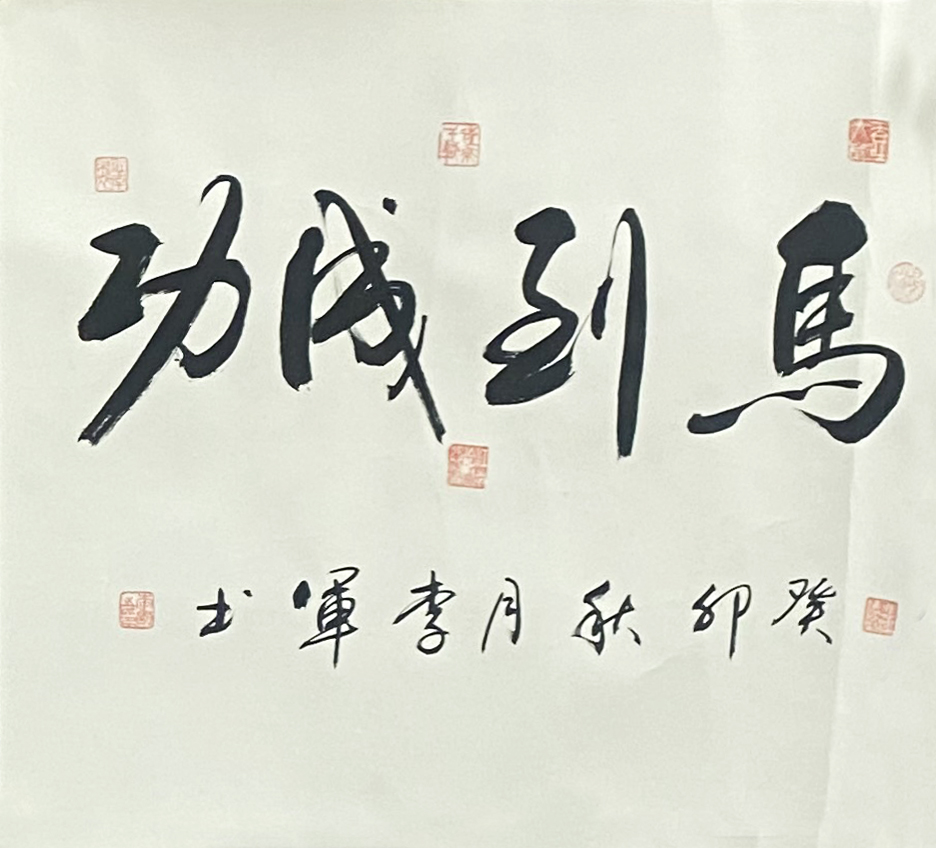 馬到成功
癸卯秋月李軍书